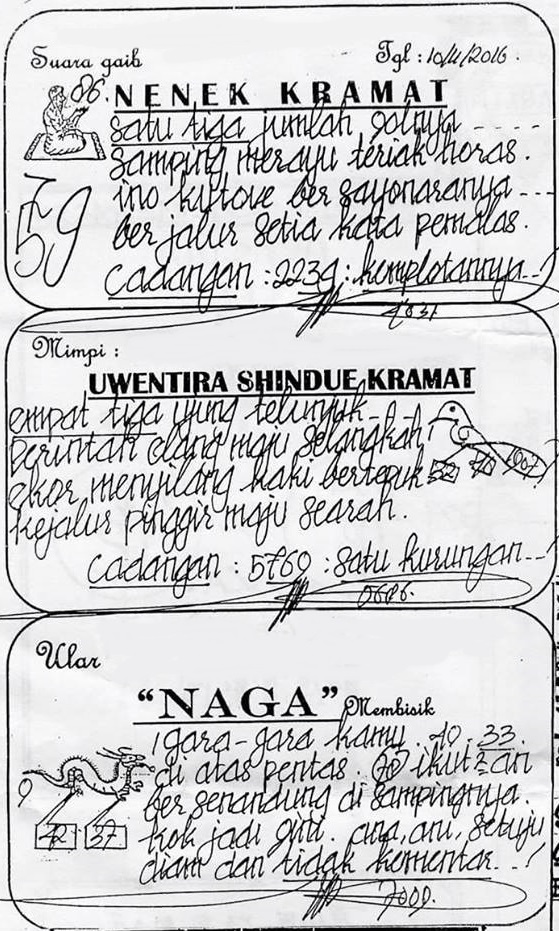 Suara gaib
Tgl : 10/4/2016.
86
NENEK KRAMAT
satu tiga jumlah golnya ----
samping merayu teriak horas.
ino kaftove ber sayonaranya ---
ber jalur setia kata pemalas.
Cadangan : 2239 : komplotannya..!
1831
Mimpi :
UWENTIRA SHINDUE KRAMAT
empat tiga ujung telunjuk - - -
perintah olang maju selangkah
ekor, menyilang kaki bertepuk
kejalur pinggir maju searah.
Cadangan : 5760 : satu kurungan---!
Ular
"NAGA" Membisik
gara-gara kamu. 40. 33.
di atas pentas. ikut
ber senandung di sampingnya.
9
42 37
kok jadi gini. anu, anu, setuju
diam dan tidak komentar...!
7009.